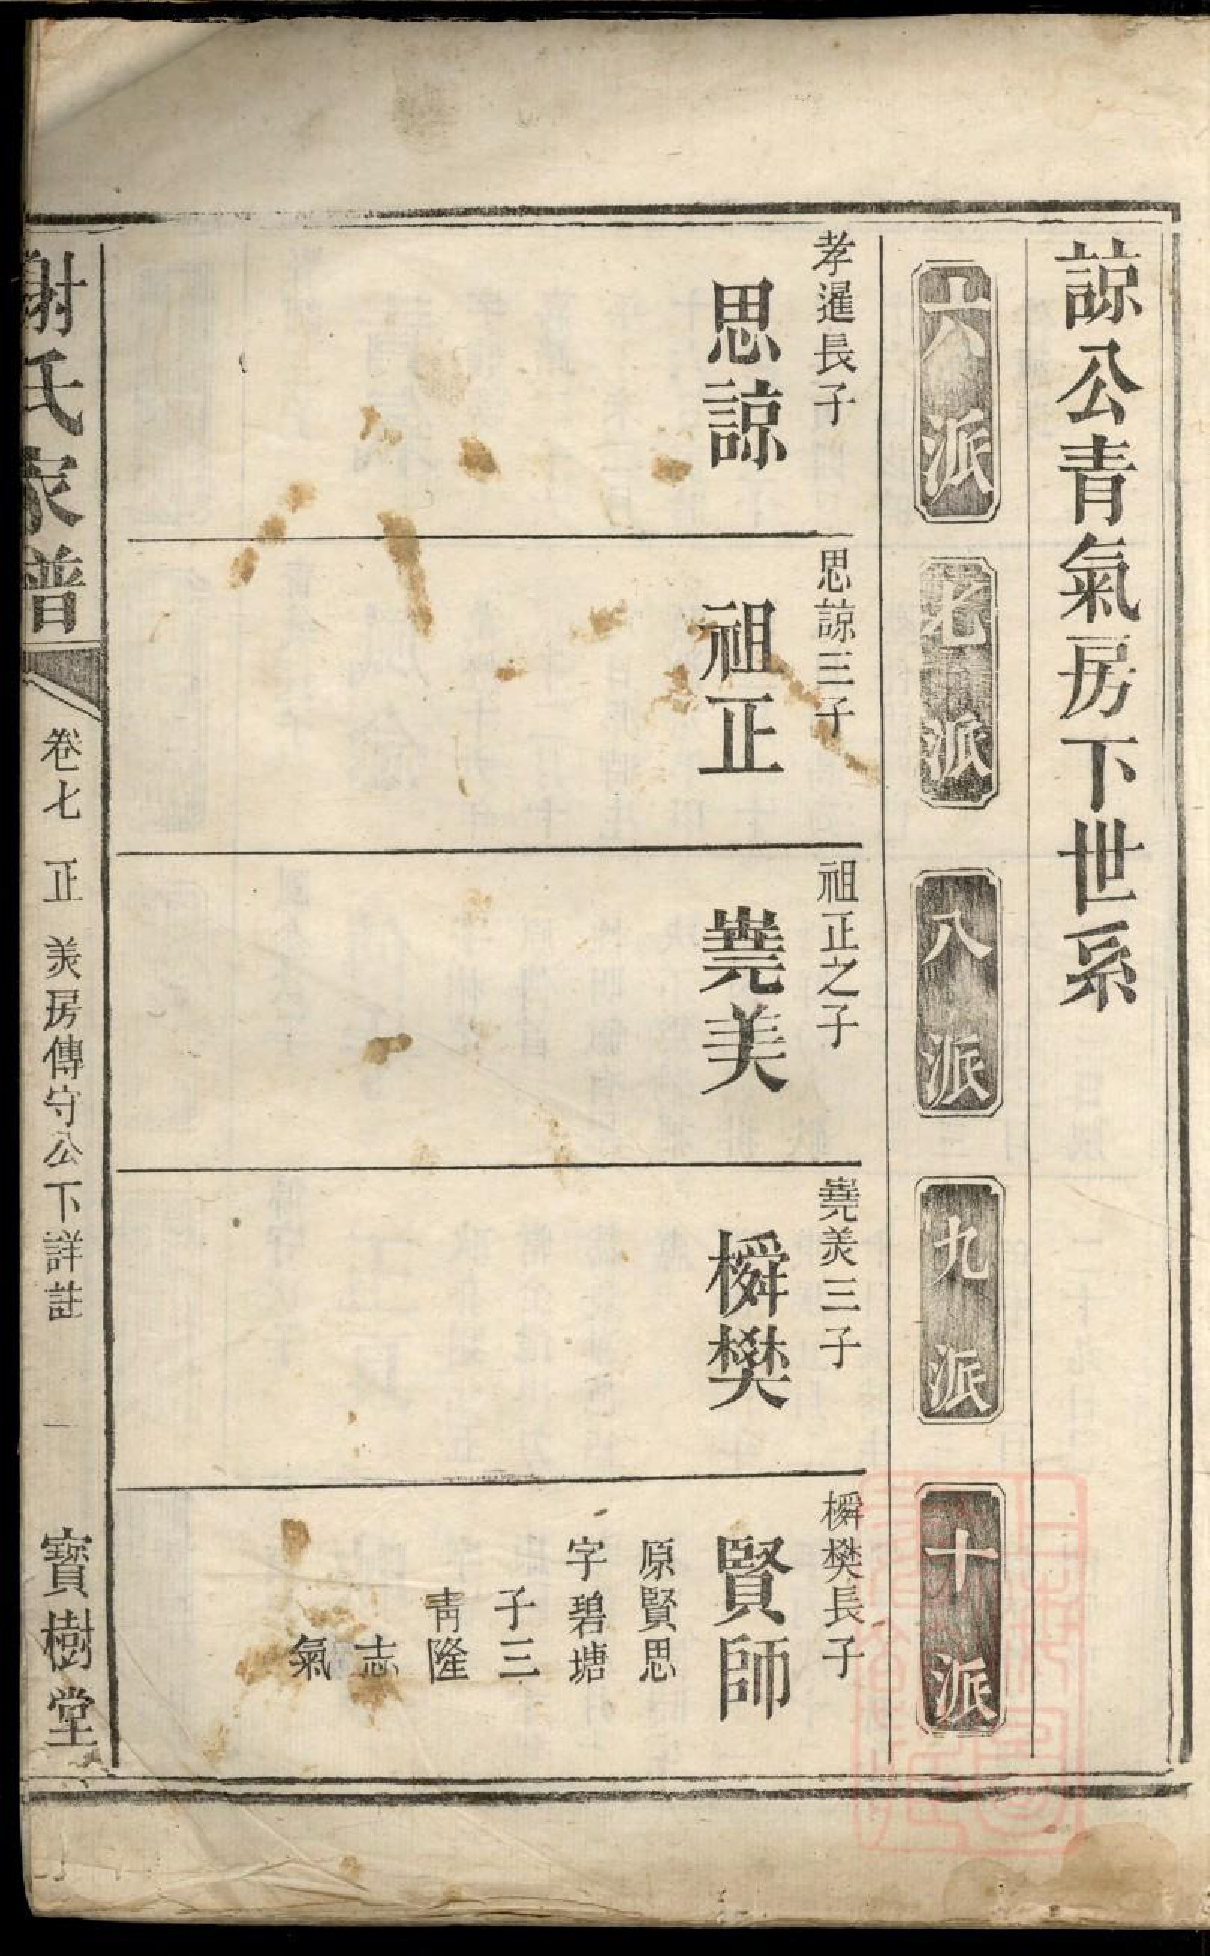 諒公青氣房下世系
六派
七派
八派
九派
十派
孝暹長子
思諒
思諒三子
祖正
祖正之子
嵬美
嵬美三子
橓樊
橓樊長子
賢師
原賢思
字碧塘
子三
青隆
志
氣
謝氏家譜
卷七 正 美房傳守公下詳註 一 寶樹堂